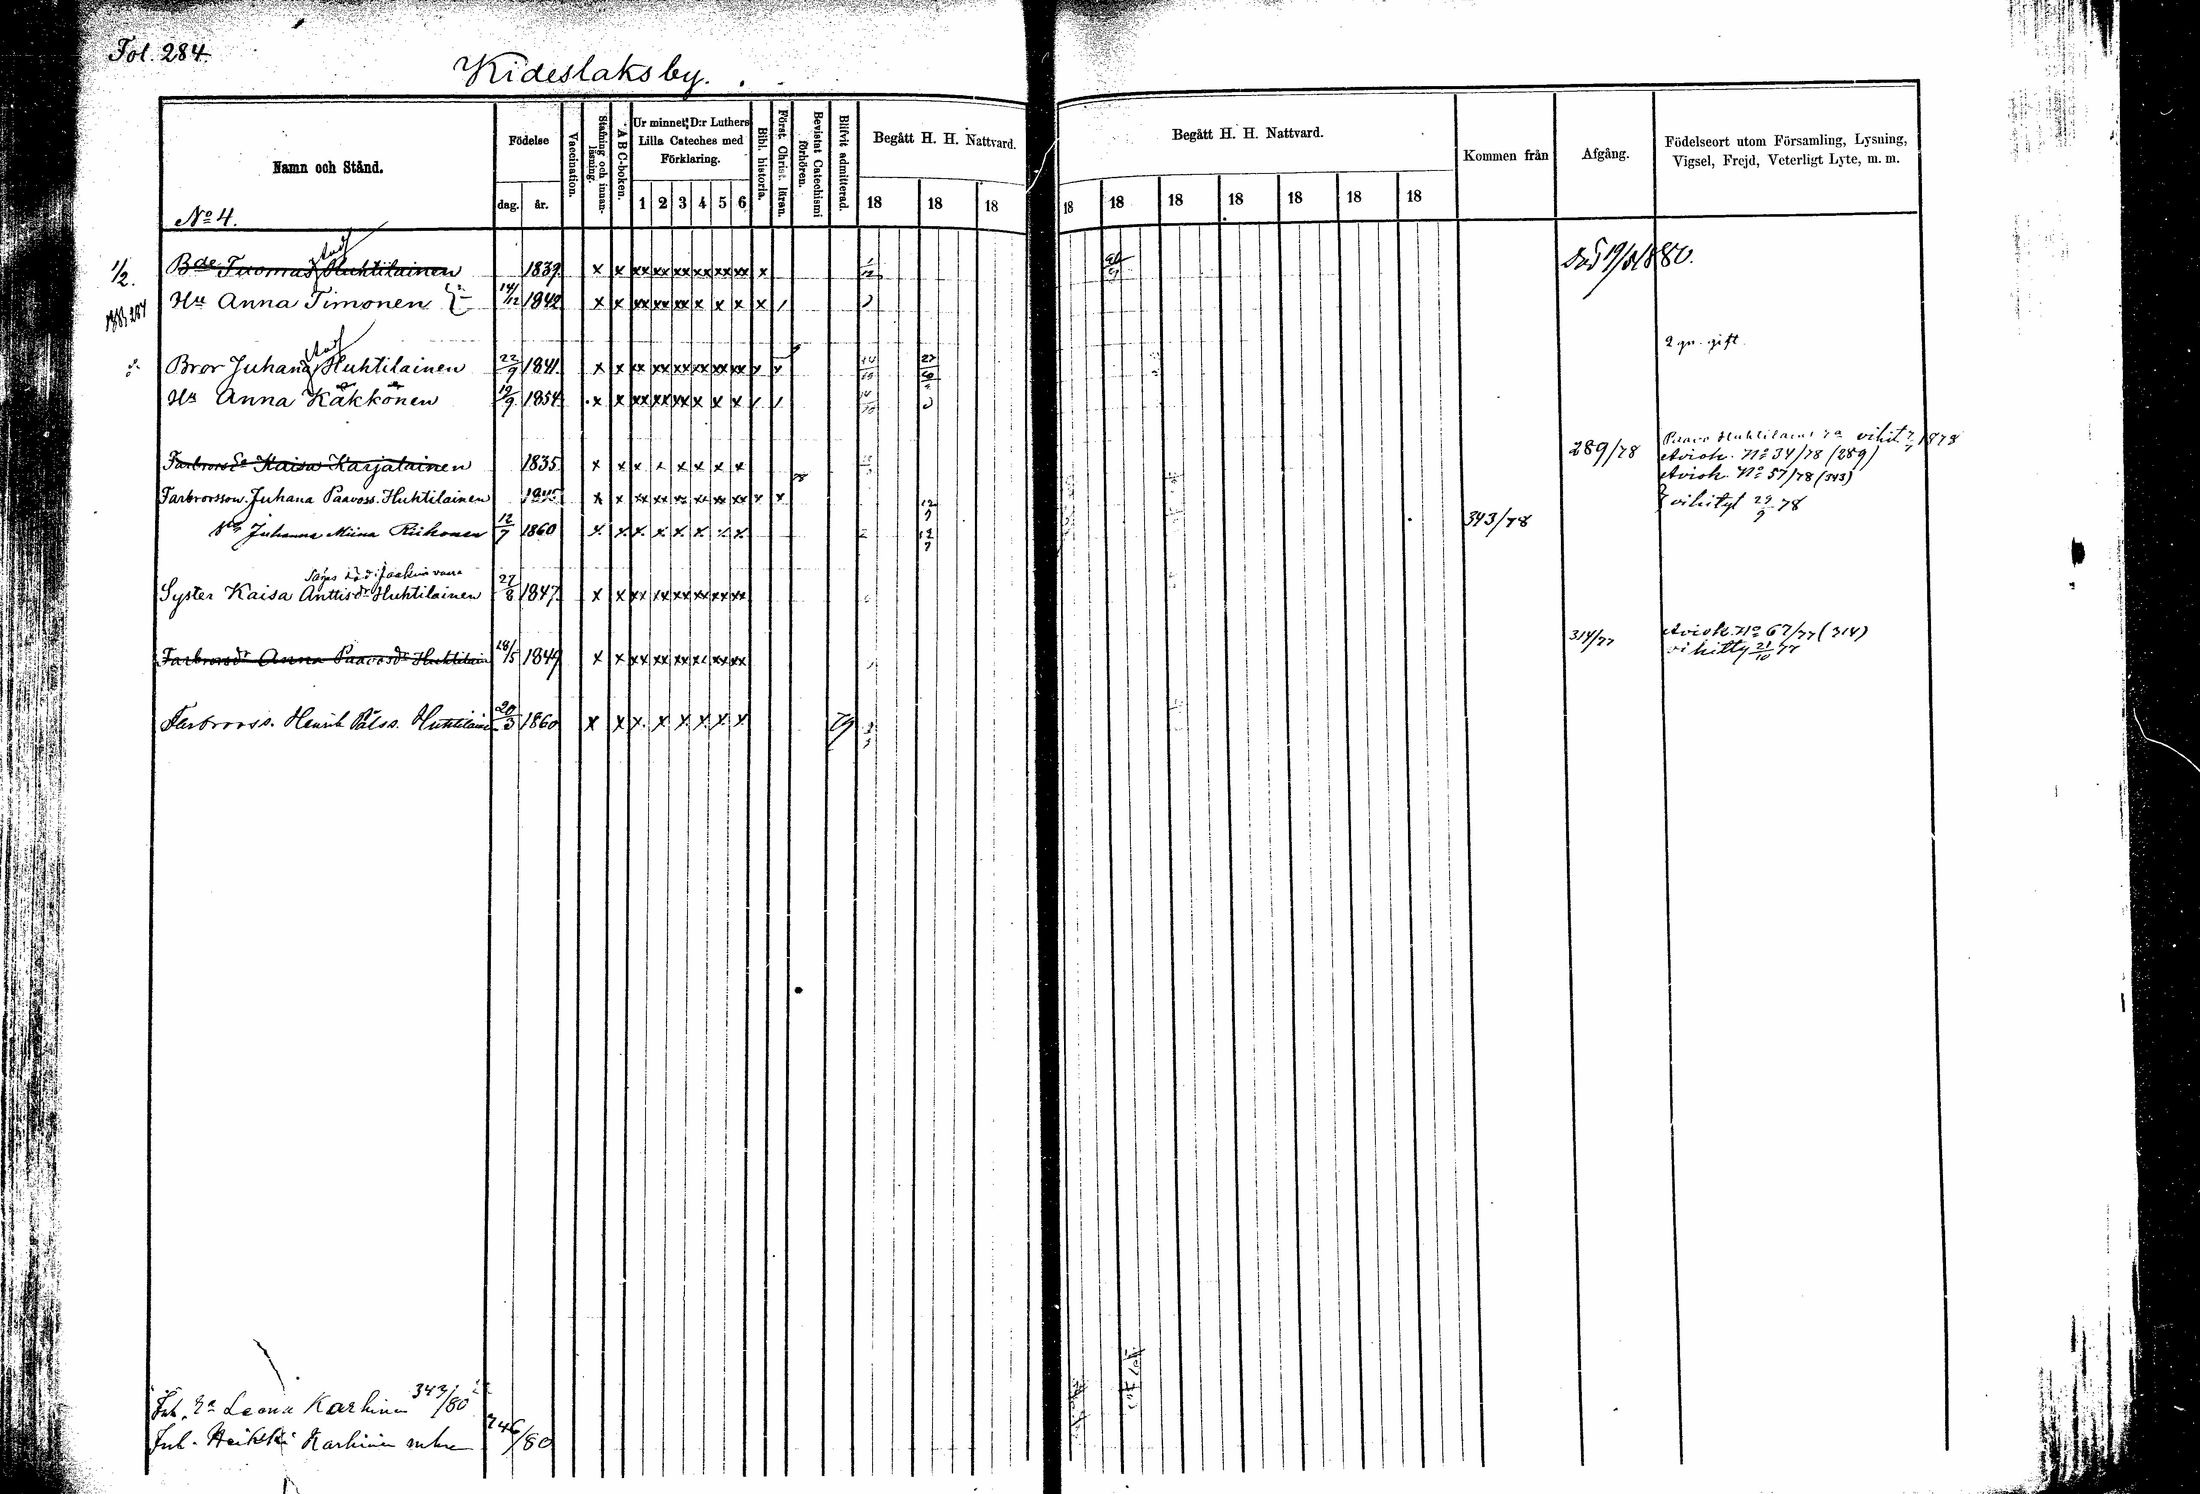 Fol. 284.
Kideslaksby.
Namn och Stånd.
No 4.
Födelse
dag. år.
Vaccination.
Stafning och innanläsning.
A B C-boken.
Ur minnet: D:r Luthers Lilla Cateches med Förklaring.
1 2 3 4 5 6
Bibl. historia.
Först. Christ. läran.
Bevistat Catechismi förhören.
Blifvit admitterad.
Begått H. H. Nattvard.
18 18 18
Begått H. H. Nattvard.
18 18 18 18 18 18 18
Kommen från
Afgång.
Födelseort utom Församling, Lysning, Vigsel, Frejd, Veterligt Lyte, m. m.
1/2. Bde Tuomas Huhtilainen 1839 x x xx xx xx xx xx xx x
Hu Anna Timonen 14/12 1842 x x xx xx xx x x x x /
Bror Juhana Huhtilainen 22/9 1841 x x xx xx xx xx xx xx x x 2 gn. gift.
Hu Anna Käkkönen 19/9 1854 x x xx xx xx x x x / /
Kaisa Karjalainen 1835 x x x x x x x x 289/78
Aviok. No 34/78 (289)
Aviok. No 57/78 (343)
Farbrorsson Juhana Paavoss. Huhtilainen 1845 x x xx xx xx xx xx xx x x
vihityt 29/9 78
Juhanna Miina Riikonen 12/7 1860 x x x x x x x x 343/78
Syster Kaisa Anttisdr Huhtilainen 27/8 1847 x x xx xx xx xx xx xx
Farbrorsdr Anna Paavosdr Huhtilain 18/5 1849 x x xx xx xx xx xx xx 314/77 Aviok. No 67/77 (314)
vihitty 21/10 77
Farbrorss. Henrik Pålss. Huhtilaine 20/3 1860 x x x x x x x x 79
Leena Karhinen 343/80
Juh. Heikki Karhinen 346/80